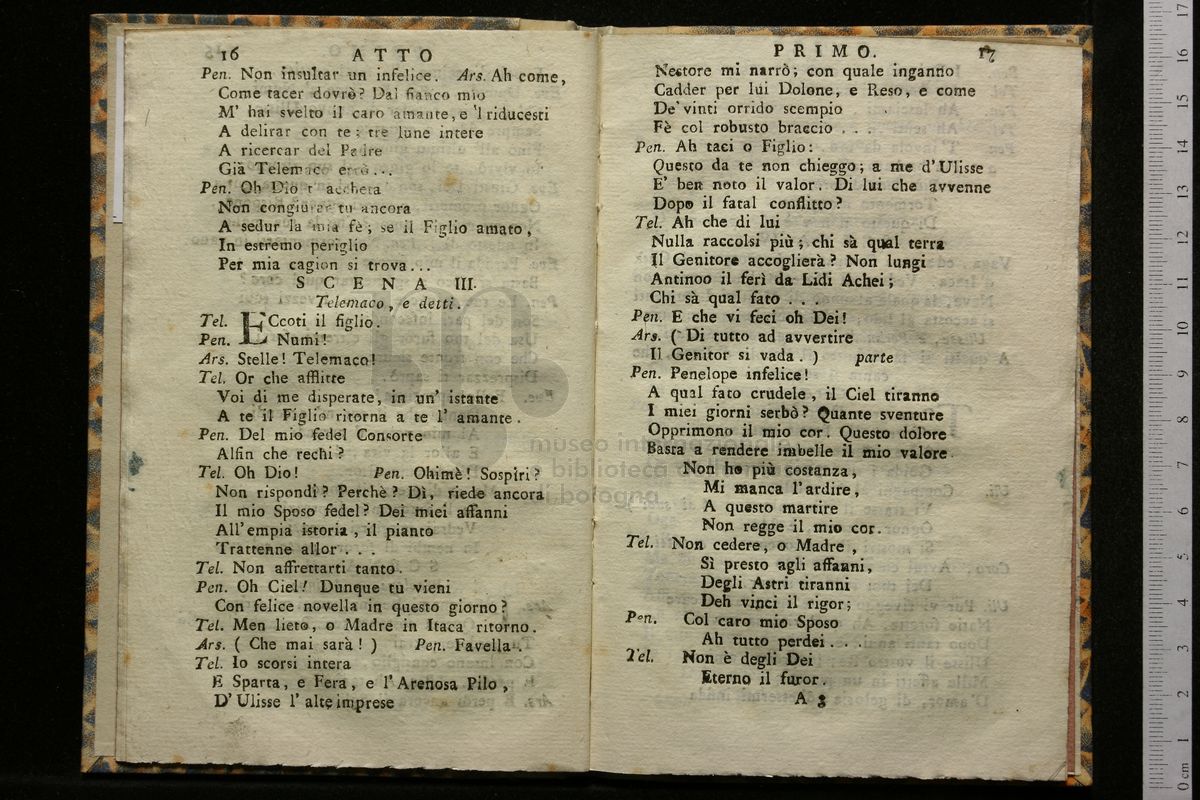 16 ATTO
Pen. Non insultar un infelice. Ars. Ah come,
Come tacer dovrò? Dal fianco mio
M' hai svelto il caro amante, e 'l riducesti
A delirar con te: tre lune intere
A ricercar del Padre
Già Telemaco errò...
Pen. Oh Dio t' accheta
Non congiurar tu ancora
A sedur la mia fè; se il Figlio amato,
In estremo periglio
Per mia cagion si trova...
SCENA III.
Telemaco, e detti.
Tel. ECcoti il figlio.
Pen. Numi!
Ars. Stelle! Telemaco!
Tel. Or che afflitte
Voi di me disperate, in un' istante
A te il Figlio ritorna a te l' amante.
Pen. Del mio fedel Consorte
Alfin che rechi?
Tel. Oh Dio! Pen. Ohimè! Sospiri?
Non rispondi? Perchè? Dì, riede ancora
Il mio Sposo fedel? Dei miei affanni
All' empia istoria, il pianto
Trattenne allor...
Tel. Non affrettarti tanto.
Pen. Oh Ciel! Dunque tu vieni
Con felice novella in questo giorno?
Tel. Men lieto, o Madre in Itaca ritorno.
Ars. (Che mai sarà!) Pen. Favella.
Tel. Io scorsi intera
E Sparta, e Fera, e l' Arenosa Pilo,
D' Ulisse l' alte imprese
PRIMO. 17
Nestore mi narrò; con quale inganno
Cadder per lui Dolone, e Reso, e come
De' vinti orrido scempio
Fè col robusto braccio...
Pen. Ah taci o Figlio:
Questo da te non chieggo; a me d' Ulisse
E' ben noto il valor. Di lui che avvenne
Dopo il fatal conflitto?
Tel. Ah che di lui
Nulla raccolsi più; chi sà qual terra
Il Genitore accoglierà? Non lungi
Antinoo il ferì da Lidi Achei;
Chi sà qual fato...
Pen. E che vi feci oh Dei!
Ars. (Di tutto ad avvertire
Il Genitor si vada.) parte
Pen. Penelope infelice!
A qual fato crudele, il Ciel tiranno
I miei giorni serbò? Quante sventure
Opprimono il mio cor. Questo dolore
Basta a rendere imbelle il mio valore.
Non ho più costanza,
Mi manca l' ardire,
A questo martire
Non regge il mio cor.
Tel. Non cedere, o Madre,
Sì presto agli affanni,
Degli Astri tiranni
Deh vinci il rigor;
Pen. Col caro mio Sposo
Ah tutto perdei...
Tel. Non è degli Dei
Eterno il furor.
A
museo internazionale
biblioteca
di bologna
0 cm 1 2 3 4 5 6 7 8 9 10 11 12 13 14 15 16 17